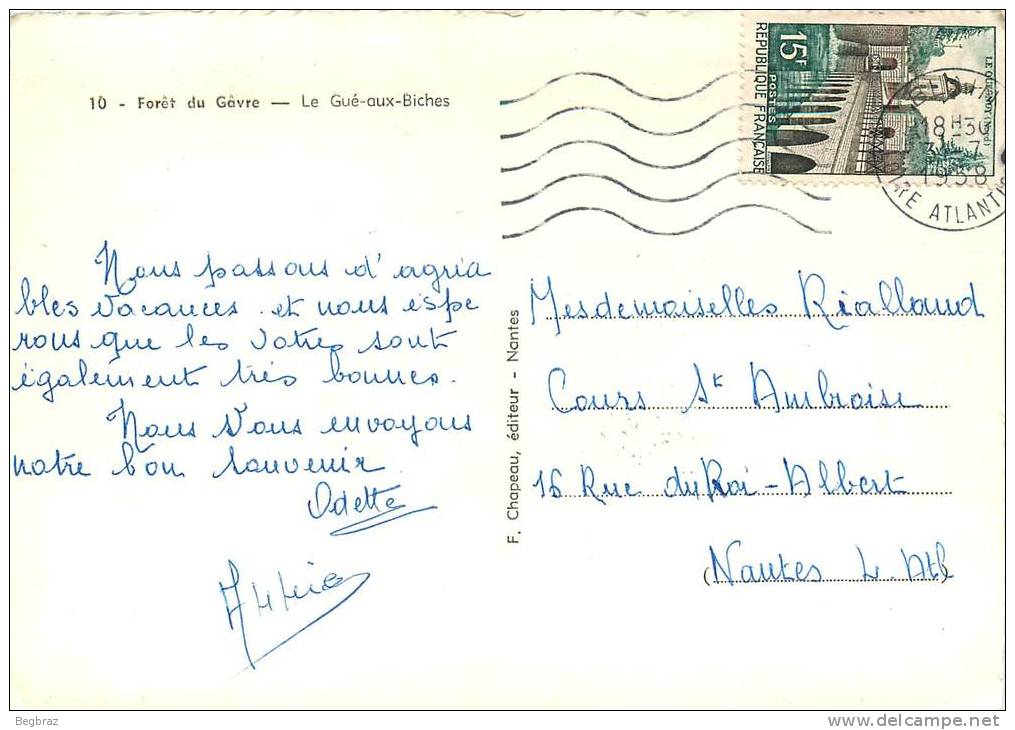 10 - Forêt du Gâvre — Le Gué-aux-Biches
Nous passons d'agréa
bles vacances et nous espé
rons que les vôtres sont
également très bonnes.
Nous vous envoyons
notre bon souvenir
Odette
F. Chapeau, éditeur - Nantes
15F
POSTES
REPUBLIQUE FRANÇAISE
LE QUESNOY (Nord)
18H30
1958
ATLANTI
Mesdemoiselles Riallaud
Cours St Ambroise
16 Rue du Roi-Albert
Nantes L. Atl
Begbraz
www.delcampe.net